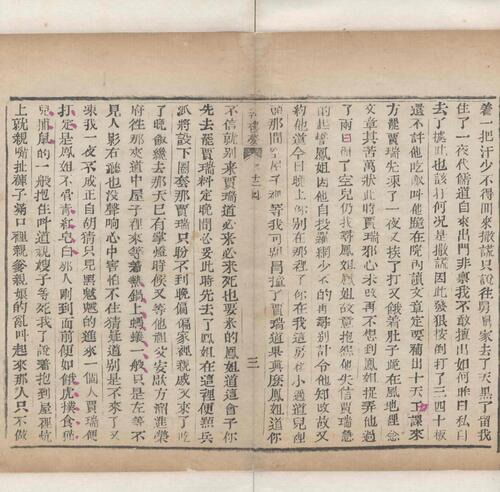 着一把汗少不得回來撒謊只說往舅舅家去了天黑了留我
住了一夜代儒道自來出門非稟我不敢擅出如何昨日私自
去了據此也該打何况是撒謊因此發狠按倒打了三四十板
還不許他吃飯叫他跪在院內讀文章定要補出十天工課來
方罷賈瑞先凍了一夜又挨了打又餓着肚子跪在風地裡念
文章其苦萬狀此時賈瑞邪心未改再不想到鳳姐捉弄他過
了兩日得了空兒仍找尋鳳姐鳳姐故意抱怨他失信賈瑞急
的起誓鳳姐因他自投羅網少不的再尋別計令他知改故又
約他道今日晚上你別在那裡了你在我這房後小過道兒裡
頭那間空屋子裡等我可別冒撞了賈瑞道果真麼鳳姐道你
紅樓夢 第十二回 三
不信就別來賈瑞道必來必來死也要來的鳳姐道這會子你
先去罷賈瑞料定晚間必妥此時先去了鳳姐在這裡便點兵
派將設下圈套那賈瑞只盼不到晚偏偏家裡親戚又來了吃
了晚飯纔去那天已有掌燈時候又等他祖父安歇方溜進榮
府往那夾道中屋子裡來等着熱鍋上螞蟻一般只是左等不
見人影右聽也沒聲响心中害怕不住猜疑道別是不來了又
凍我一夜不成正自胡猜只見黑魆魆的進來一個人賈瑞便
打定是鳳姐不管青紅皂白那人剛到面前便如餓虎撲食猫
兒捕鼠的一般抱住叫道親嫂子等死我了說着抱到屋裡炕
上就親嘴扯褲子滿口裡親爹親娘的亂叫起來那人只不做